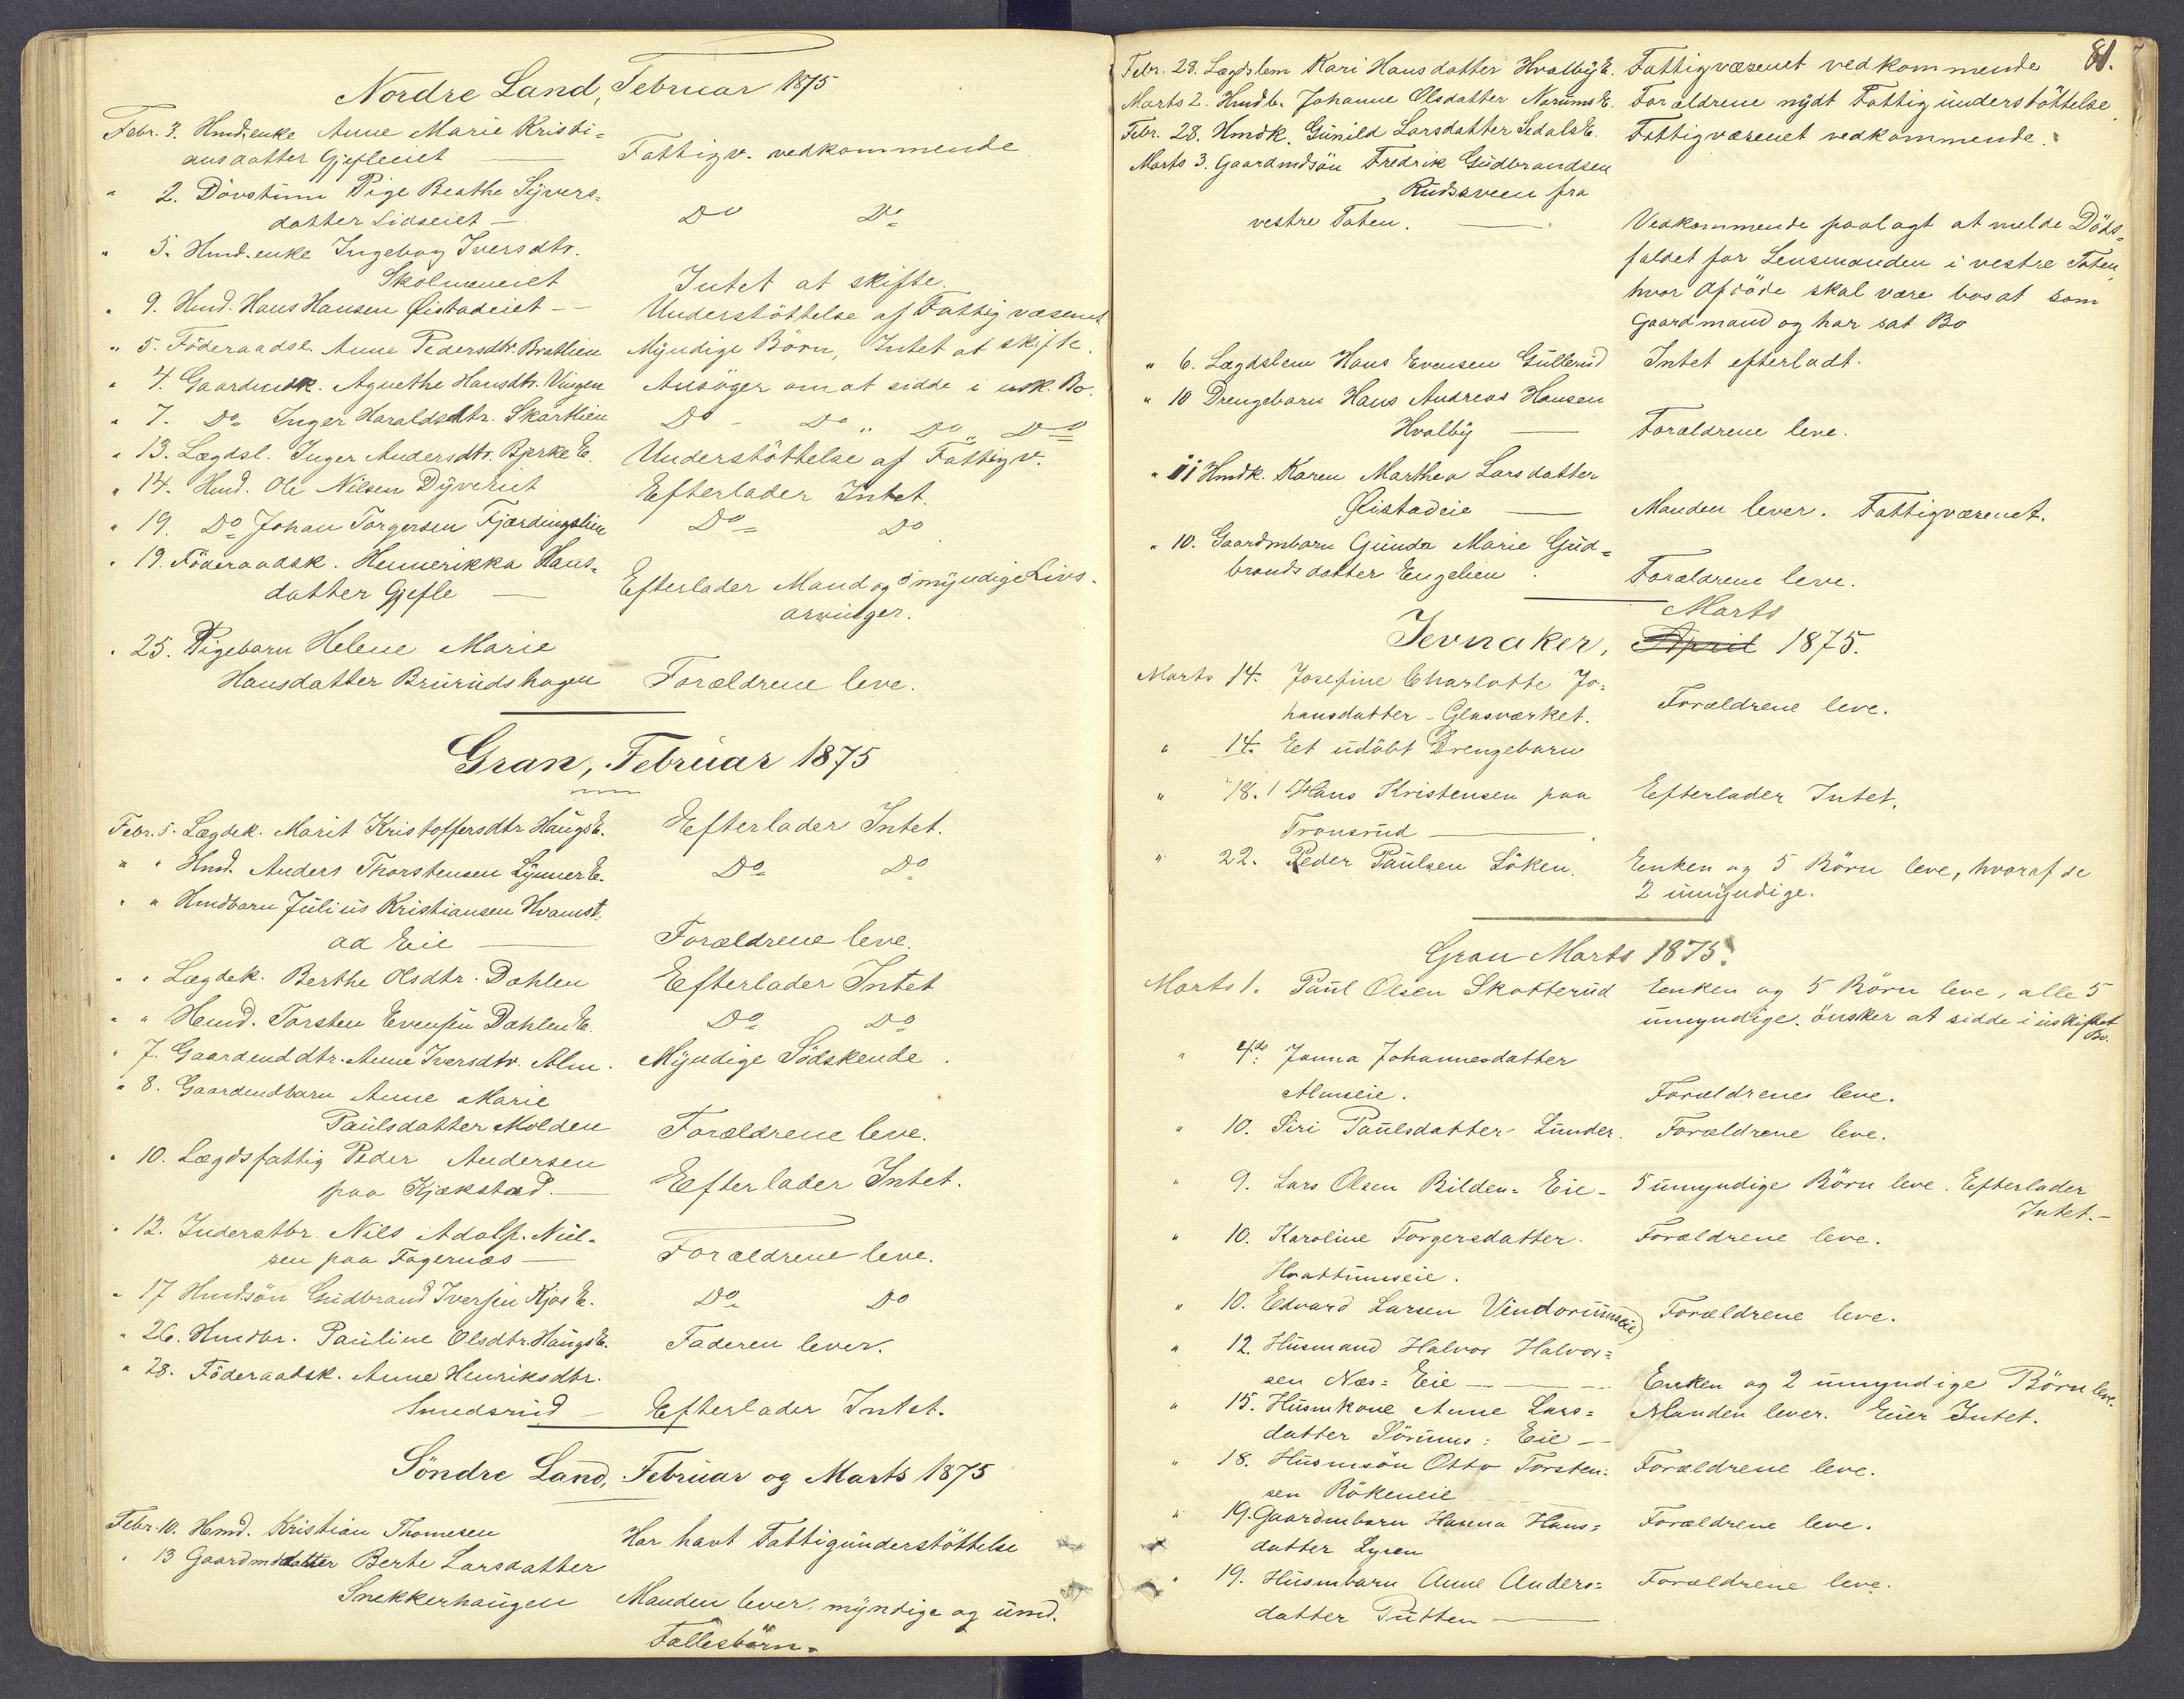 Nordre Land, Februar 1875
Febr. 3. Hmd.enke Anne Marie Kristi=
ansdatter Gjefleeiet — Fattigv. vedkommende
" 2. Dövstum Pige Beathe Syvers=
datter Lidseiet — Do Do
" 5. Hmd.enke Ingeborg Iversdtr.
Skolmeneiet Intet at skifte.
" 9. Hmd. Hans Hansen Øistadeiet — Understöttelse af Fattigvæsenet
" 5. Föderaadsk. Anne Pedersdtr. Bratlien Myndige Börn, Intet at skifte.
" 4. Gaardmdk. Agnethe Hansdtr. Vingen Ansöger om at sidde i usk. Bo.
" 7. Do Inger Haraldsdtr. Skartlien Do - Do " Do " Do
" 13. Lægdsl. Inger Andersdtr. Bjerke E. Understöttelse af Fattigv.
" 14. Hmd. Ole Nilsen Dyveeiet Efterlader Intet.
" 19. Do Johan Torgersen Fjærdingslien Do Do
" 19. Föderaadsk. Hennerikka Hans=
datter Gjefle — Efterlader Mand og 5 myndige Livs-
arvinger.
" 25. Pigebarn Helene Marie
Hansdatter Brurudshagen Forældrene leve.
Gran, Februar 1875
Febr. 5. Lægdek. Marit Kristoffersdtr. Haugs E. Efterlader Intet.
" " Hmd. Anders Thorstensen Lynner E. Do Do
" " Hmdbarn Julius Kristiansen Hvamst-
ad Eie — Forældrene leve.
" " Lægdek. Berthe Olsdtr. Dahlen Efterlader Intet
" " Hmd. Torsten Evensen Dahlen E. Do Do
" 7. Gaardmddtr. Anne Iversdtr. Alm. Myndige Södskende.
" 8. Gaardmdbarn Anne Marie
Paulsdatter Molden Forældrene leve.
" 10. Lægdsfattig Peder Andersen
paa Kjækstad. — Efterlader Intet.
" 12. Inderstbr. Nils Adolf Niel-
sen paa Fagernæs — Forældrene leve.
" 17 Hmdsön Gudbrand Iversen Kjos E. Do Do
" 26. Hmdbr. Pauline Olsdtr. Haugs E. Faderen lever.
" 28. Föderaadsk. Anne Henriksdtr.
Smedsrud — Efterlader Intet.
Söndre Land, Februar og Marts 1875
Febr. 10. Hmd. Kristian Thomesen Har havt Fattigunderstöttelse
" 13 Gaardmddatter Berte Larsdatter
Snekkerhaugen Manden lever, myndige og umd.
Fællesbörn.
81.
Febr. 28. Lægdslem Kari Hansdatter Hvalby E. Fattigvæsenet vedkommende
Marts 2. Hmdb. Johanne Olsdatter Narums E. Forældrene nydt Fattigunderstöttelse.
Febr. 28. Hmdk. Gunild Larsdatter Sedals E. Fattigvæsenet vedkommende.
Marts 3. Gaardmdsön Fredrik Gudbrandsen
Rudssveen fra
vestre Toten. — Vedkommende paalagt at melde Döds-
faldet for Lensmanden i vestre Toten
hvor Afdöde skal være bosat som
Gaardmand og har sat Bo
" 6. Lægdslem Hans Evensen Gullerud Intet efterladt.
" 10 Drengebarn Hans Andreas Hansen
Hvalby — Forældrene leve.
" 11 Hmdk. Karen Marthea Larsdatter
Øistadeie — Manden lever. Fattigvæsenet.
" 10. Gaardmbarn Gunda Marie Gud=
brandsdatter Engelien. Forældrene leve.
Marts
Jevnaker, April 1875.
Marts 14. Josefine Charlotte Jo=
hansdatter - Glasværket. Forældrene leve.
" 14. Eet udöbt Drengebarn
" 18. Hans Kristensen paa Efterlader Intet.
Tronsrud —
" 22. Peder Paulsen Löken. Enken og 5 Börn leve, hvoraf de
2 umyndige.
Gran Marts 1875.
Marts 1. Paul Olsen Skatterud Enken og 5 Börn leve, alle 5
umyndige. önsker at sidde i uskiftet
Bo.
" 4de Janna Johannesdatter
Almseie. Forældrenes leve.
" 10. Siri Paulsdatter Lunder. Forældrene leve.
" 9. Lars Olsen Bilden= Eie - 5 umyndige Börn leve. Efterlader
Intet.-
" 10. Karoline Torgersdatter Forældrene leve.
Hvattumseie.
" 10. Edvard Larsen Vindorumseie Forældrene leve.
" 12. Husmand Halvor Halvor=
sen Næs= Eie — Enken og 2 umyndige Börn leve.
" 15. Husmkone Anne Lars= Manden lever. Eier Intet.
datter Sörums= Eie —
" 18. Husmsön Otto Torsten= Forældrene leve.
sen Rökeneie
" 19. Gaardmbarn Hanna Hans= Forældrene leve.
datter Lysen
" 19. Husmbarn Anne Anders= Forældrene leve.
datter Putten —